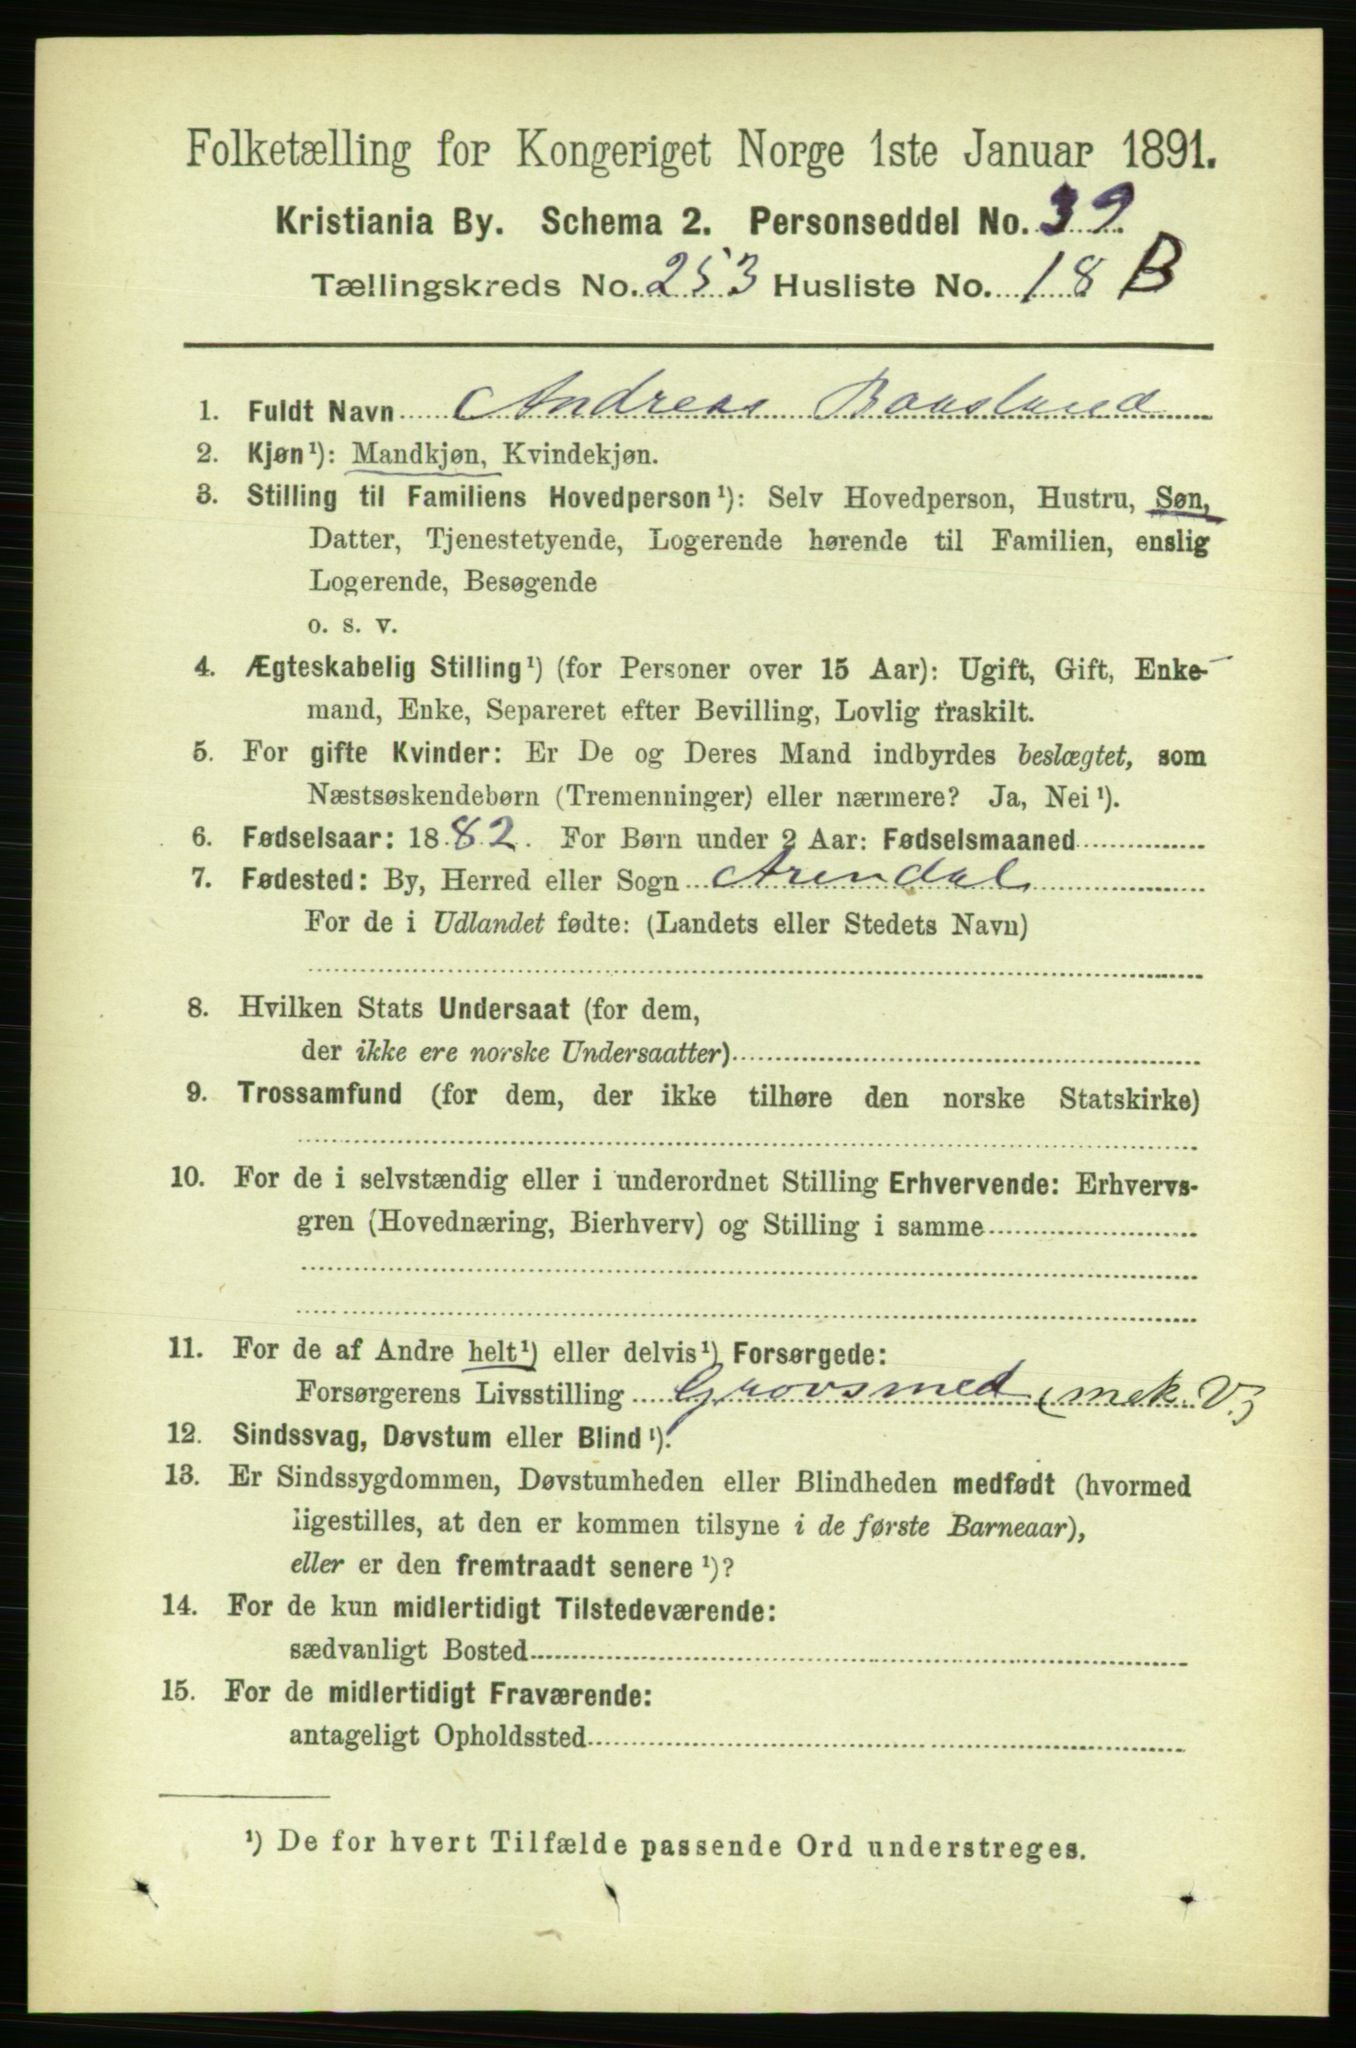 Folketælling for Kongeriget Norge 1ste Januar 1891.
Kristiania By. Schema 2. Personseddel No. 39
Tællingskreds No. 253 Husliste No. 18 B
1. Fuldt Navn Andreas Baasland
2. Kjøn¹): Mandkjøn, Kvindekjøn.
3. Stilling til Familiens Hovedperson¹): Selv Hovedperson, Hustru, Søn,
Datter, Tjenestetyende, Logerende hørende til Familien, enslig
Logerende, Besøgende
o. s. v.
4. Ægteskabelig Stilling¹) (for Personer over 15 Aar): Ugift, Gift, Enke-
mand, Enke, Separeret efter Bevilling, Lovlig fraskilt.
5. For gifte Kvinder: Er De og Deres Mand indbyrdes beslægtet, som
Næstsøskendebørn (Tremenninger) eller nærmere? Ja, Nei¹).
6. Fødselsaar: 1882. For Børn under 2 Aar: Fødselsmaaned
7. Fødested: By, Herred eller Sogn Arendal
For de i Udlandet fødte: (Landets eller Stedets Navn)
8. Hvilken Stats Undersaat (for dem,
der ikke ere norske Undersaatter)
9. Trossamfund (for dem, der ikke tilhøre den norske Statskirke)
10. For de i selvstændig eller i underordnet Stilling Erhvervende: Erhvervs-
gren (Hovednæring, Bierhverv) og Stilling i samme
11. For de af Andre helt¹) eller delvis¹) Forsørgede:
Forsørgerens Livsstilling Grovsmed (mek. V.)
12. Sindssvag, Døvstum eller Blind¹).
13. Er Sindssygdommen, Døvstumheden eller Blindheden medfødt (hvormed
ligestilles, at den er kommen tilsyne i de første Barneaar),
eller er den fremtraadt senere¹)?
14. For de kun midlertidigt Tilstedeværende:
sædvanligt Bosted
15. For de midlertidigt Fraværende:
antageligt Opholdssted
¹) De for hvert Tilfælde passende Ord understreges.